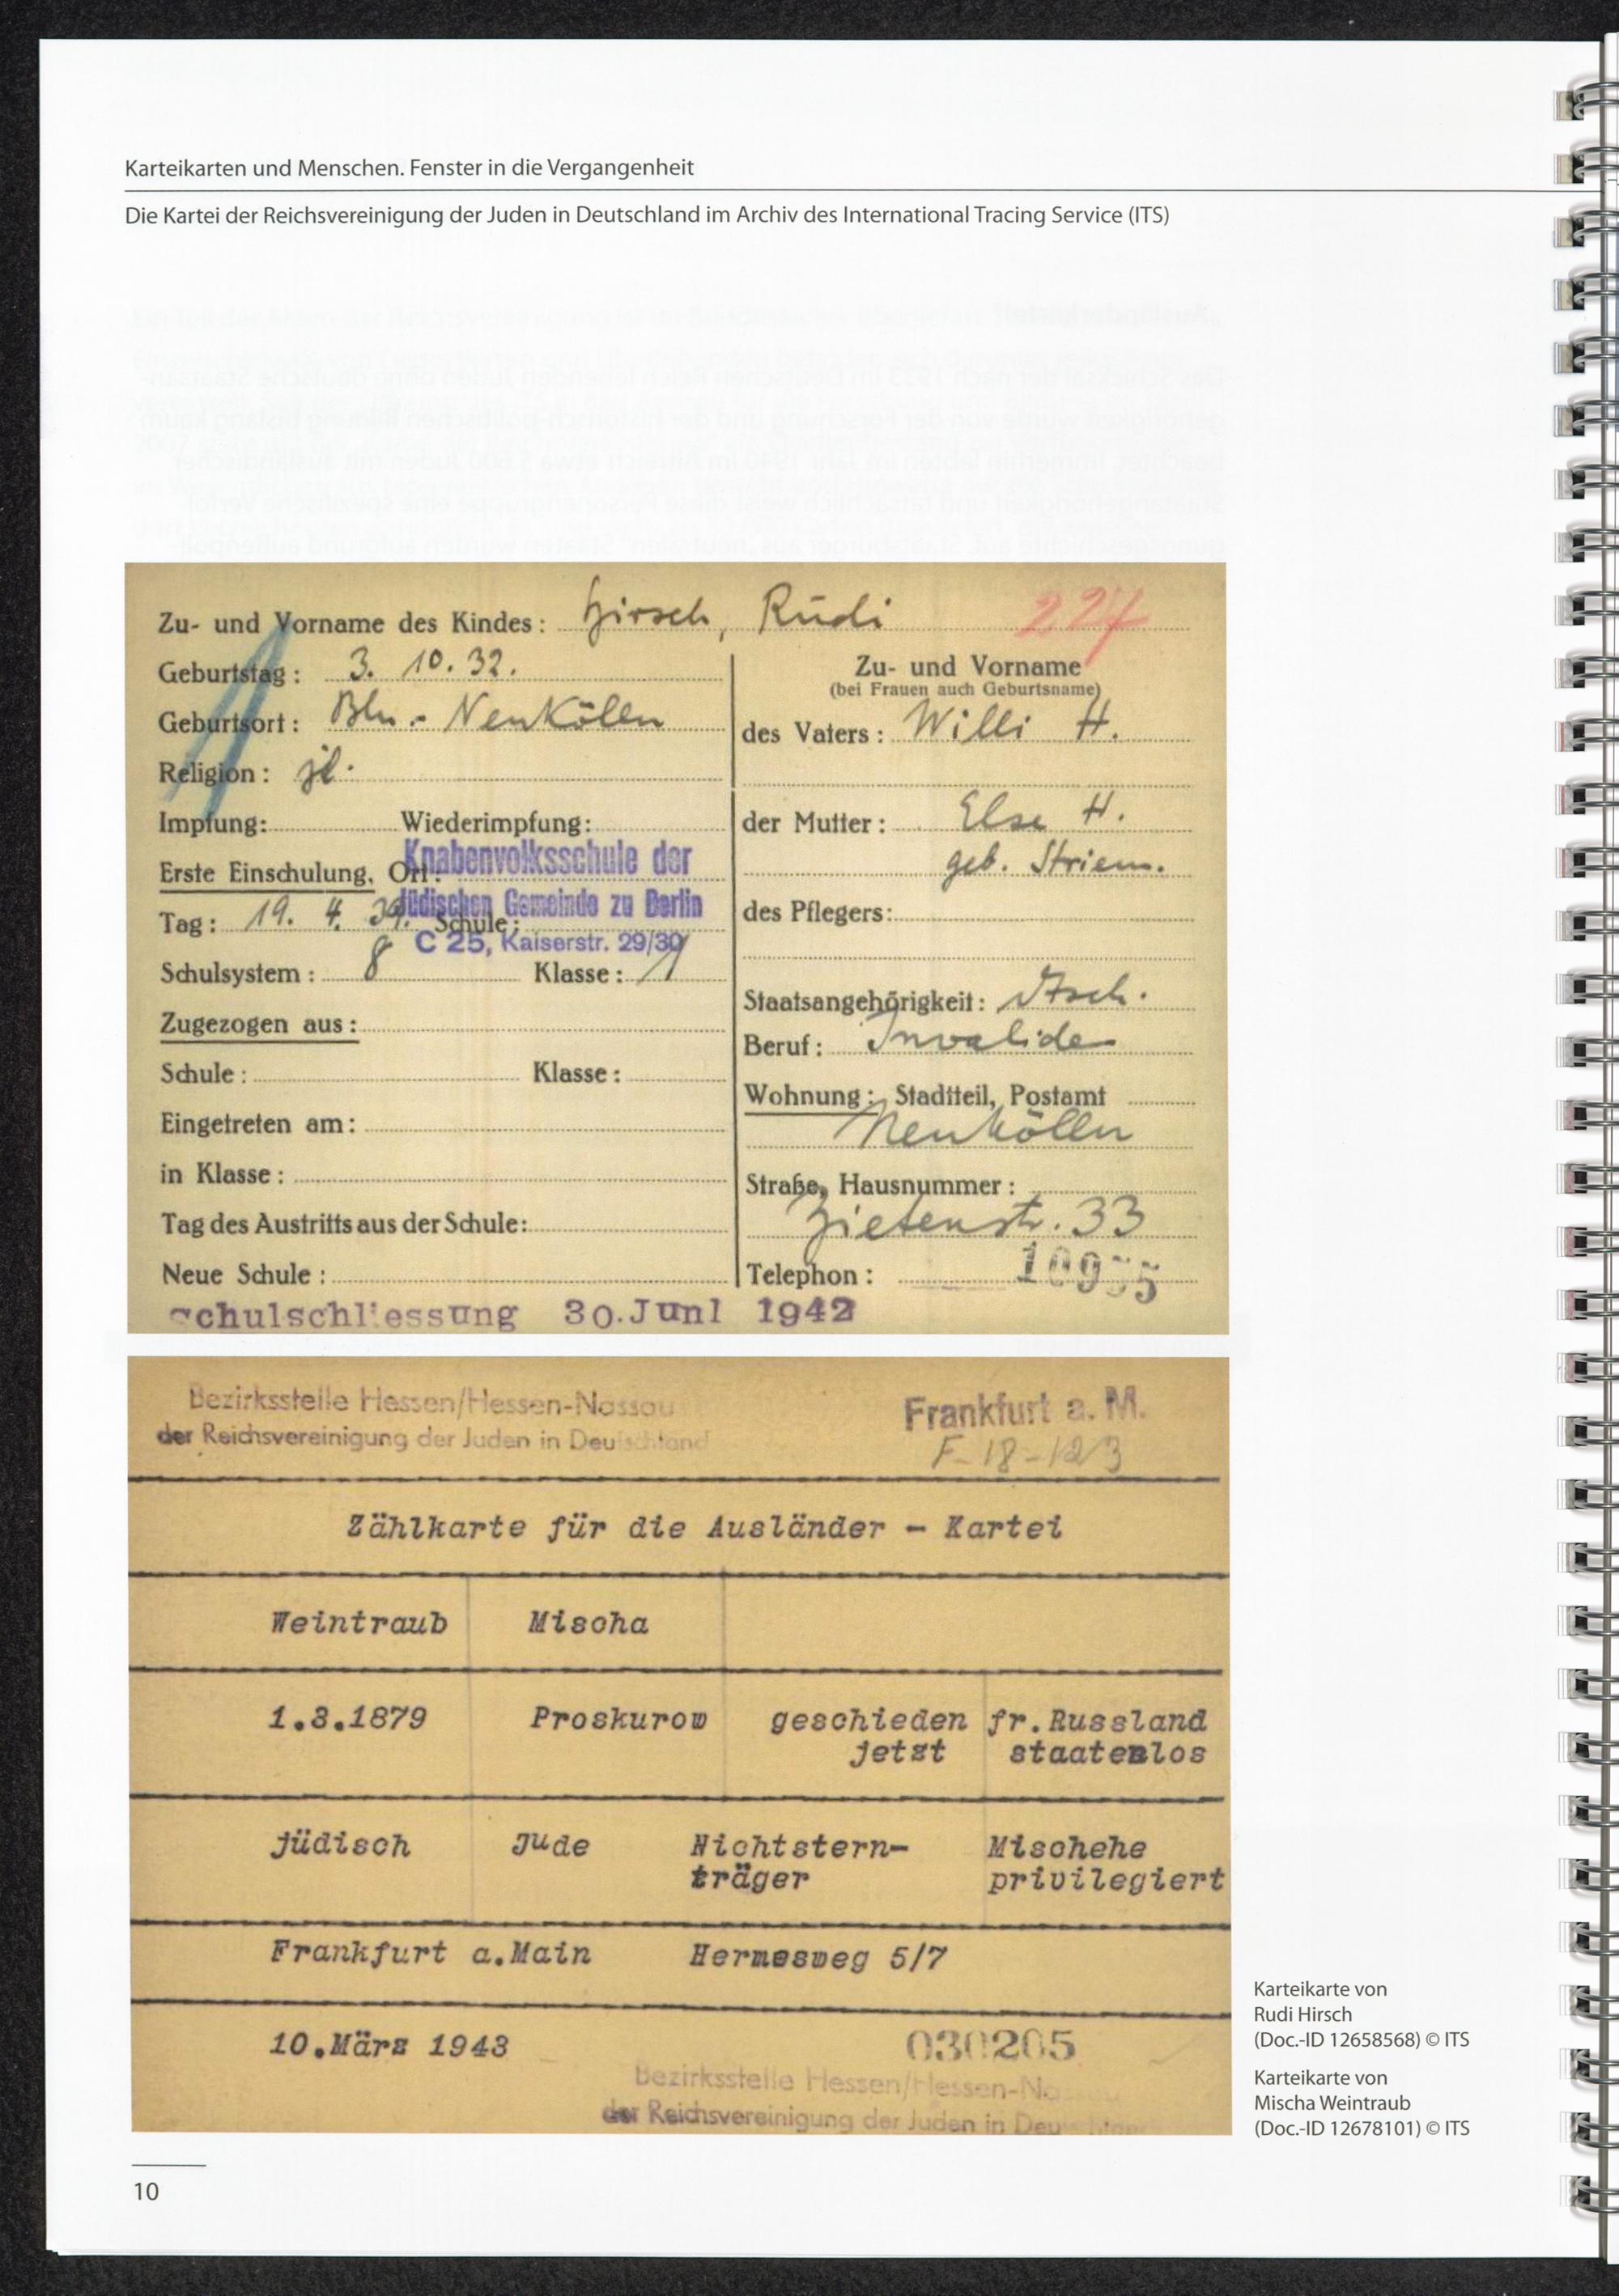 Karteikarten und Menschen. Fenster in die Vergangenheit
Die Kartei der Reichsvereinigung der Juden in Deutschland im Archiv des International Tracing Service (ITS)
Zu- und Vorname des Kindes: Hirsch, Rudi 227
Geburtstag: 3. 10. 32.
Geburtsort: Bln.- Neukölln
Religion: jd.
Impfung: Wiederimpfung:
Erste Einschulung, Ort:
Knabenvolksschule der
Jüdischen Gemeinde zu Berlin
C 25, Kaiserstr. 29/30
Tag: 19. 4. 39. Schule:
Schulsystem: 8 Klasse: 1
Zugezogen aus:
Schule: Klasse:
Eingetreten am:
in Klasse:
Tag des Austritts aus der Schule:
Neue Schule:
Zu- und Vorname
(bei Frauen auch Geburtsname)
des Vaters: Willi H.
der Mutter: Else H.
geb. Striem.
des Pflegers:
Staatsangehörigkeit: Dtsch.
Beruf: Invalide
Wohnung: Stadtteil, Postamt
Neukölln
Straße, Hausnummer:
Zietenstr. 33
Telephon:
Schulschliessung 30.Juni 1942
Bezirksstelle Hessen/Hessen-Nassau
der Reichsvereinigung der Juden in Deutschland
Frankfurt a. M.
F-18-123
Zählkarte für die Ausländer - Kartei
Weintraub Mischa
1.3.1879 Proskurow geschieden fr.Russland
jetzt staatenlos
jüdisch Jude Nichtstern- Mischehe
träger privilegiert
Frankfurt a.Main Hermesweg 5/7
10.März 1943 030205
Bezirksstelle Hessen/Hessen-Nassau
der Reichsvereinigung der Juden in Deutschland
Karteikarte von
Rudi Hirsch
(Doc.-ID 12658568) © ITS
Karteikarte von
Mischa Weintraub
(Doc.-ID 12678101) © ITS
10